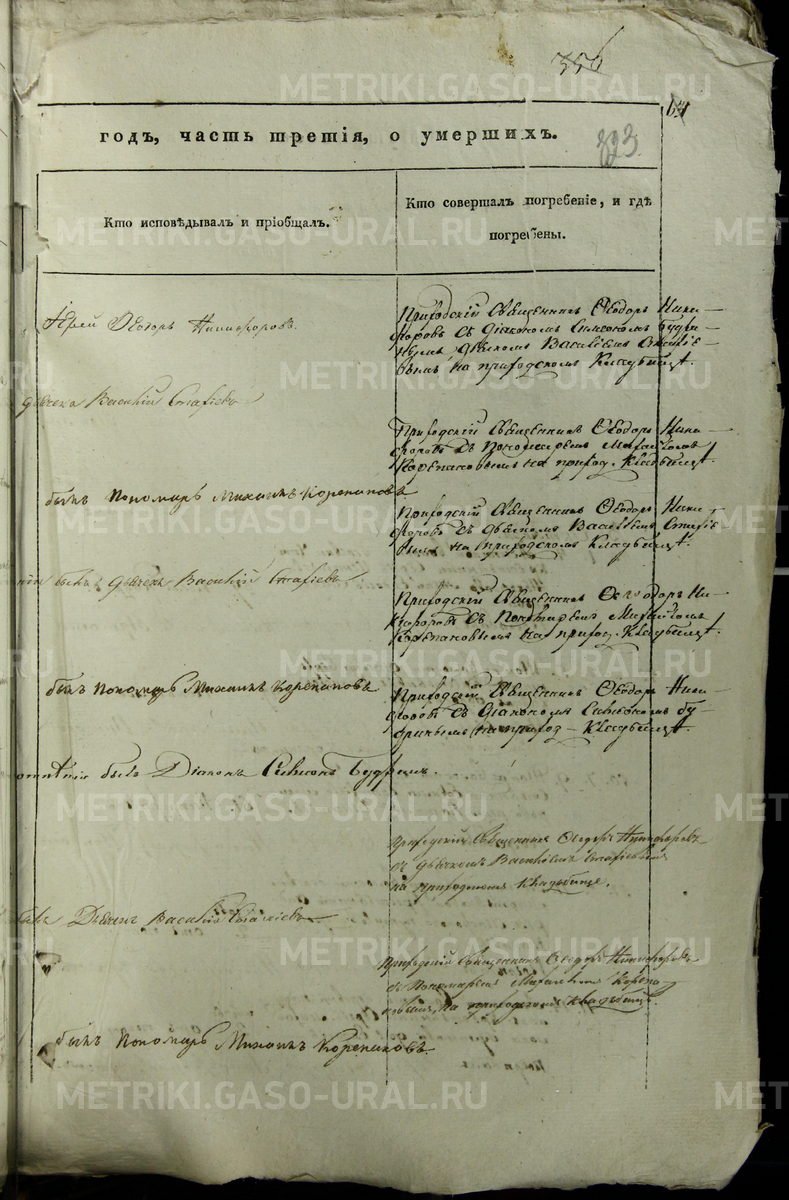 350
64
годъ, часть третія, о умершихъ.
823
Кто исповѣдывалъ и пріобщалъ.
Кто совершалъ погребеніе, и гдѣ
погребены.
Іерей Ѳеодоръ Никифоровъ.
Приходскій Священникъ Ѳеодоръ Ники–
форовъ съ діакономъ Симеономъ Будри–
нымъ, дьячкомъ Василіемъ Стафіе–
вымъ, на приходскомъ Кладбищѣ.
дьячекъ Василій Стафіевъ
Приходскій Священникъ Ѳеодоръ Ники–
форовъ съ Пономаремъ Михайломъ
Корепановымъ на приход. Кладбищѣ.
былъ Пономарь Михаилъ Корепановъ
Приходскій Священникъ Ѳеодоръ Ники–
форовъ съ дьячкомъ Василіемъ Стафіе–
вымъ на Приходскомъ Кладбищѣ.
былъ дьячекъ Василій Стафіевъ
Приходскій Священникъ Ѳеодоръ Ни–
кифоровъ съ Пономаремъ Михайломъ
Корепановымъ на приход. Кладбищѣ.
былъ Пономарь Михаилъ Корепановъ
Приходскій Священникъ Ѳеодоръ Ники–
форовъ съ Діакономъ Симеономъ Бу–
дринымъ на приход– Кладбищѣ.
былъ Діаконъ Симеонъ Будринъ.
Приходскій Священникъ Ѳеодоръ Никифоровъ
съ дьячкомъ Василіемъ Стафіевымъ
на приходскомъ Кладбище.
Дьячекъ Василій Стафіевъ
Приходскій Священникъ Ѳеодоръ Никифоровъ
съ Пономаремъ Михаиломъ Корепа–
новымъ, на приходскомъ Кладбище.
былъ Пономарь Михаилъ Корепановъ.
METRIKI.GASO-URAL.RU